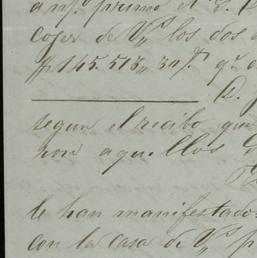 a mi primo el S. D
coger de Vs. los dos
$ 145.513,, 30 rs. q.e
D.
segun el recibo que
hon aquellos
le han manifestado
con la casa de Vs. p